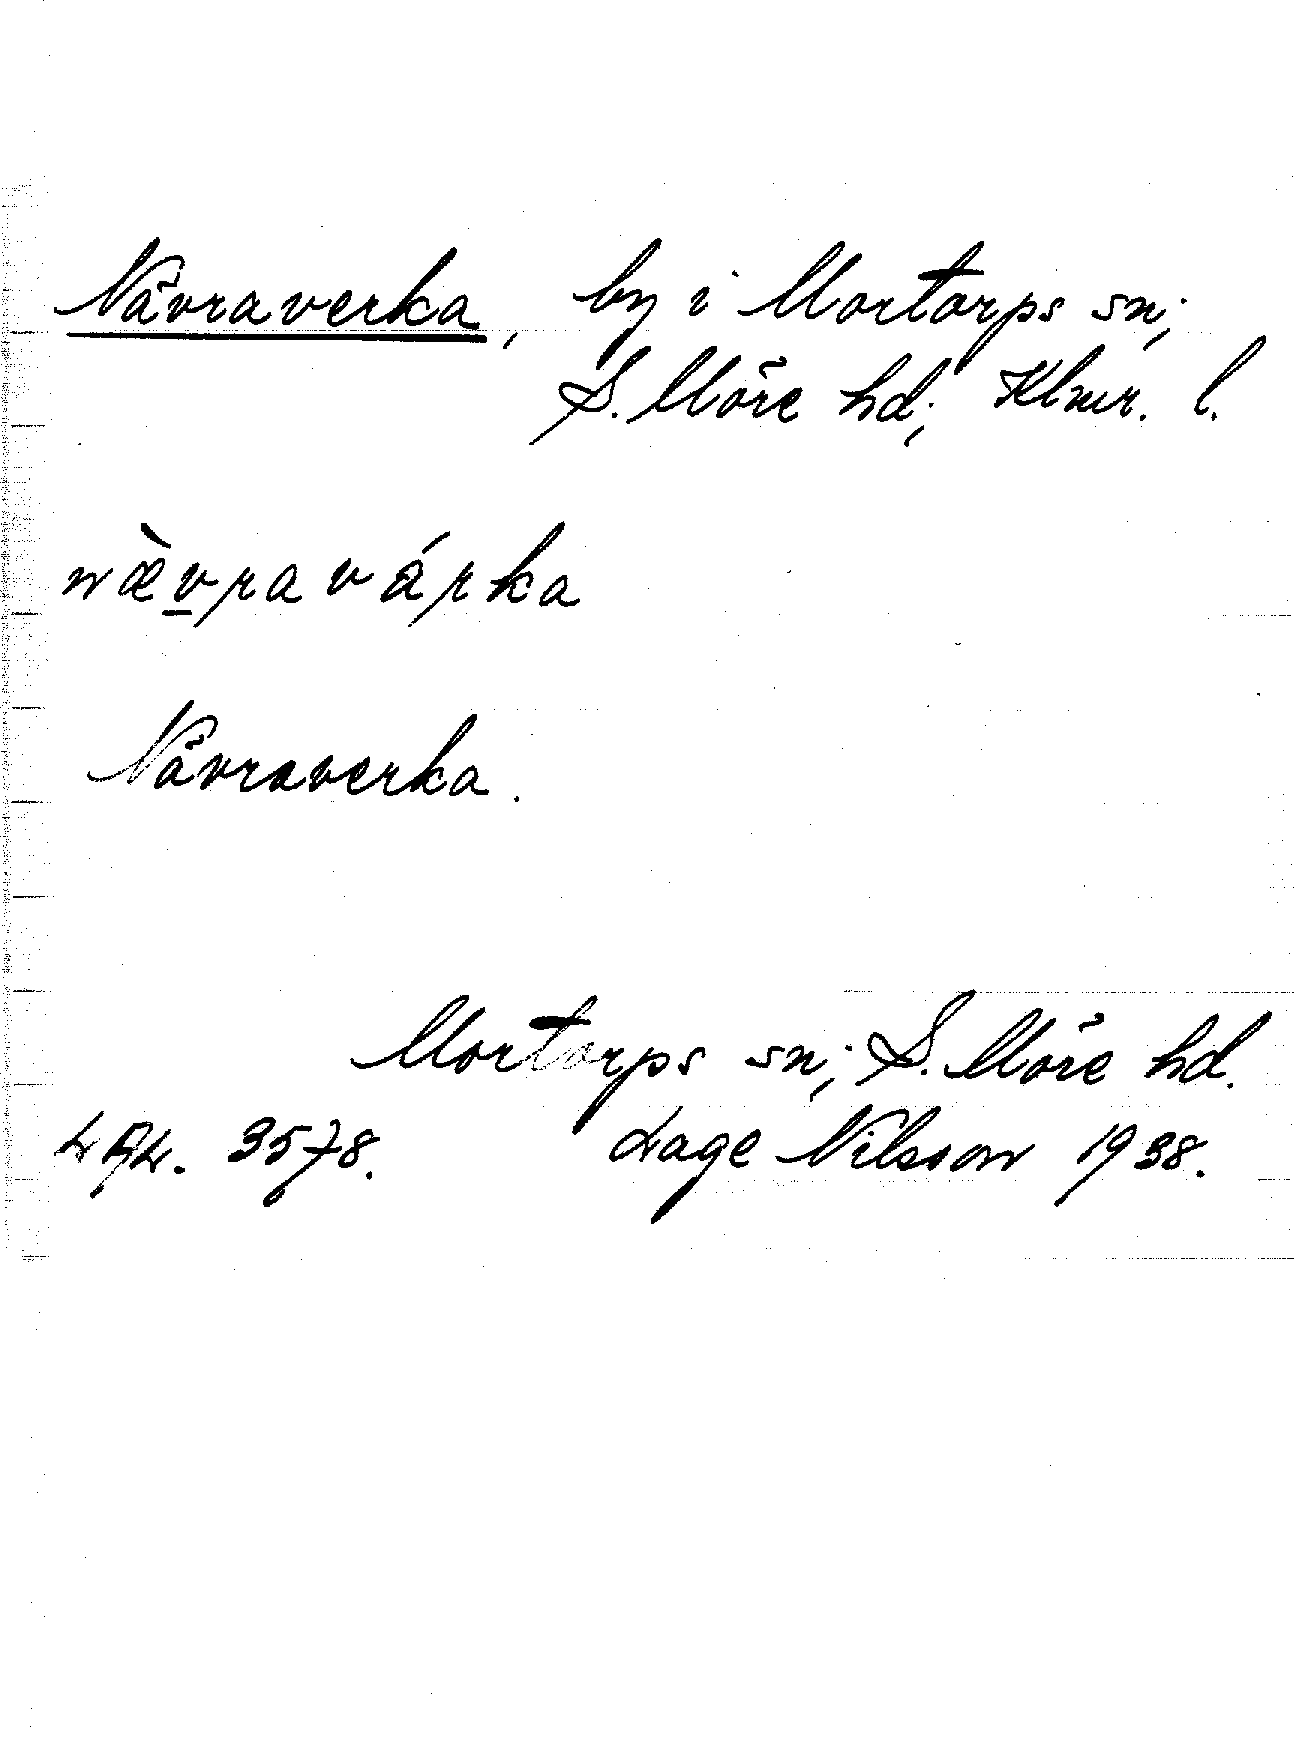 Nävraverka, by i Mortorps sn;
S. Möre hd; Klmr. l.
nævravárka
Nävraverka.
Mortorps sn; S. Möre hd.
3578. Lage Nilsson 1938.